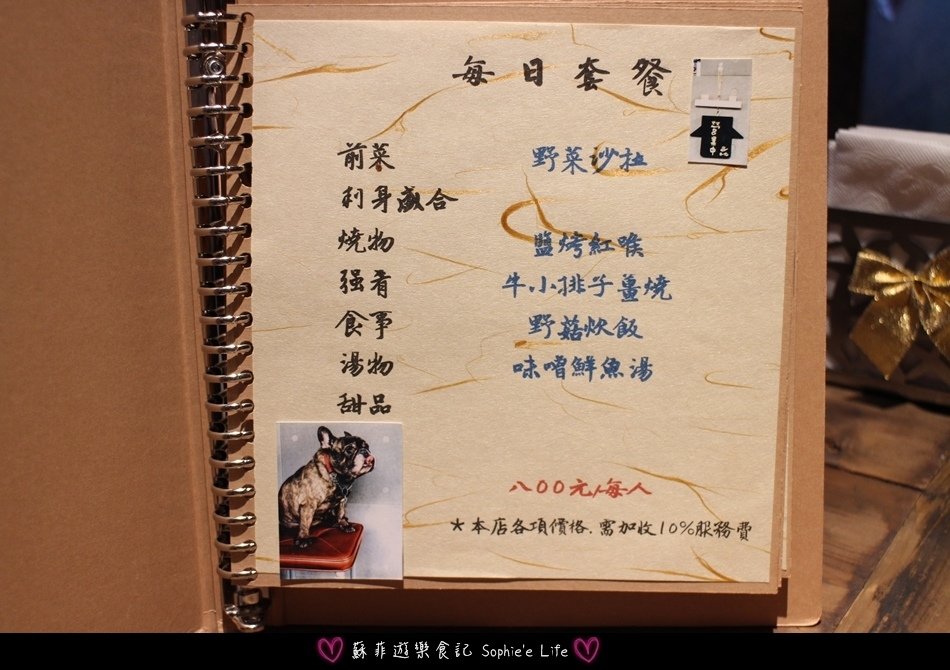 每日套餐
前菜 野菜沙拉
刺身盛合
燒物 鹽烤紅喉
強肴 牛小排子薑燒
食事 野菇炊飯
湯物 味噌鮮魚湯
甜品
八00元/每人
*本店各項價格.需加收10%服務費
蘇菲遊樂食記 Sophie'e Life